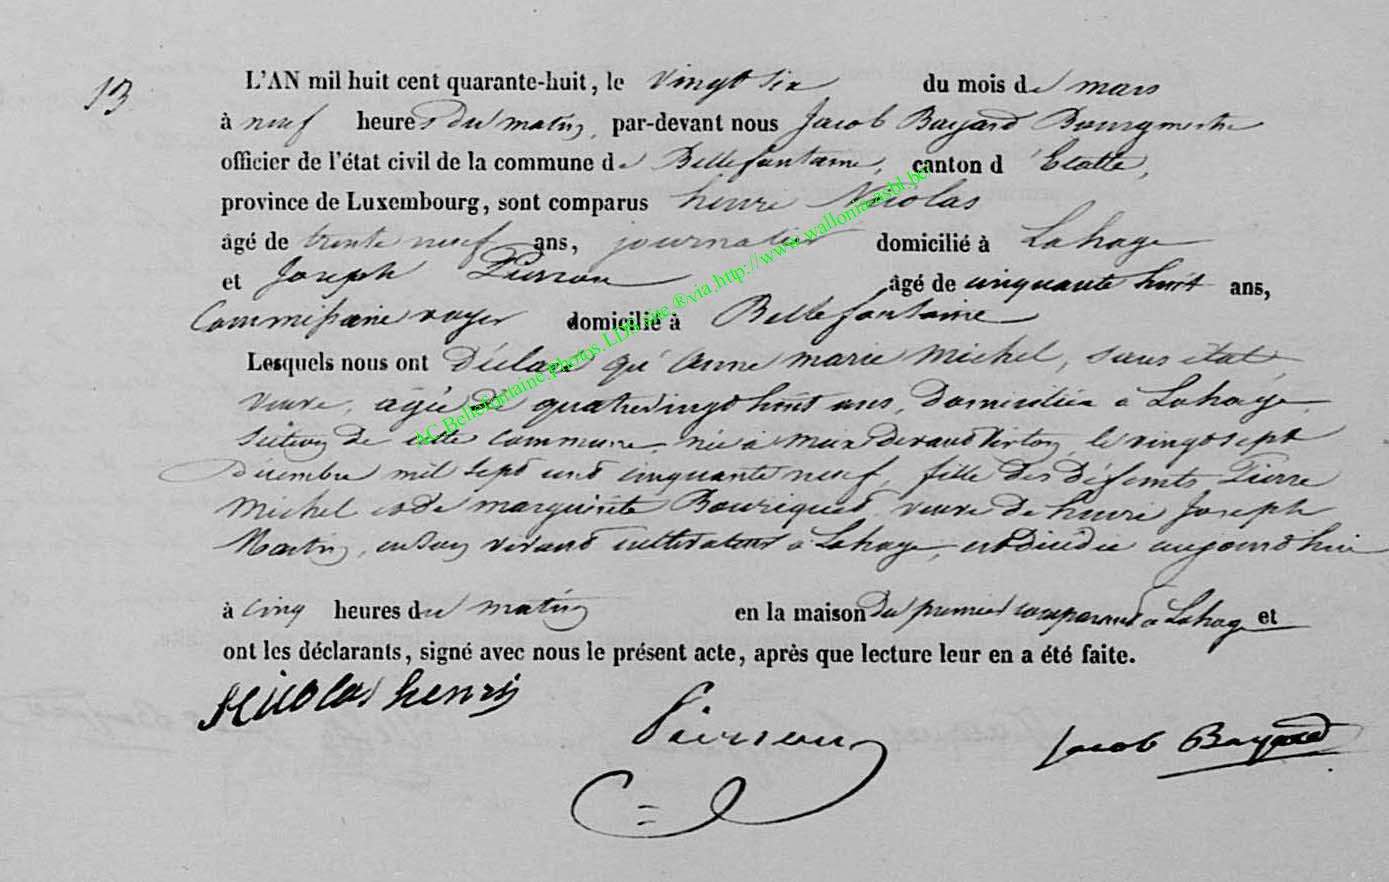 13
L'AN mil huit cent quarante-huit, le vingt six du mois de mars
à neuf heures du matin, par-devant nous Jacob Bayard Bourgmestre
officier de l'état civil de la commune de Bellefontaine, canton d'Etalle,
province de Luxembourg, sont comparus henri Nicolas
âgé de trente neuf ans, journalier domicilié à Lahage
et Joseph Pierson âgé de cinquante huit ans,
Commissaire voyer domicilié à Bellefontaine
Lesquels nous ont Déclaré qu'anne marie Michel, sans état,
veuve, agée de quatrevingt huit ans, Domiciliée à Lahage,
Section de cette Commune, née à meix devant virton, le vingt sept
Décembre mil sept cent cinquante neuf, fille des Défunts Pierre
Michel et de marguerite Bouriquet, veuve de henri Joseph
Martin, en Son vivant cultivateur à Lahage, est Décédée aujourd'hui
à Cinq heures du matin en la maison du premier comparant à Lahage et
ont les déclarants, signé avec nous le présent acte, après que lecture leur en a été faite.
Nicolas henri
Pierson
Jacob Bayard
AC.Bellefontaine.Photos.LDS.site.®via.http://www.wallonia-asbl.be/